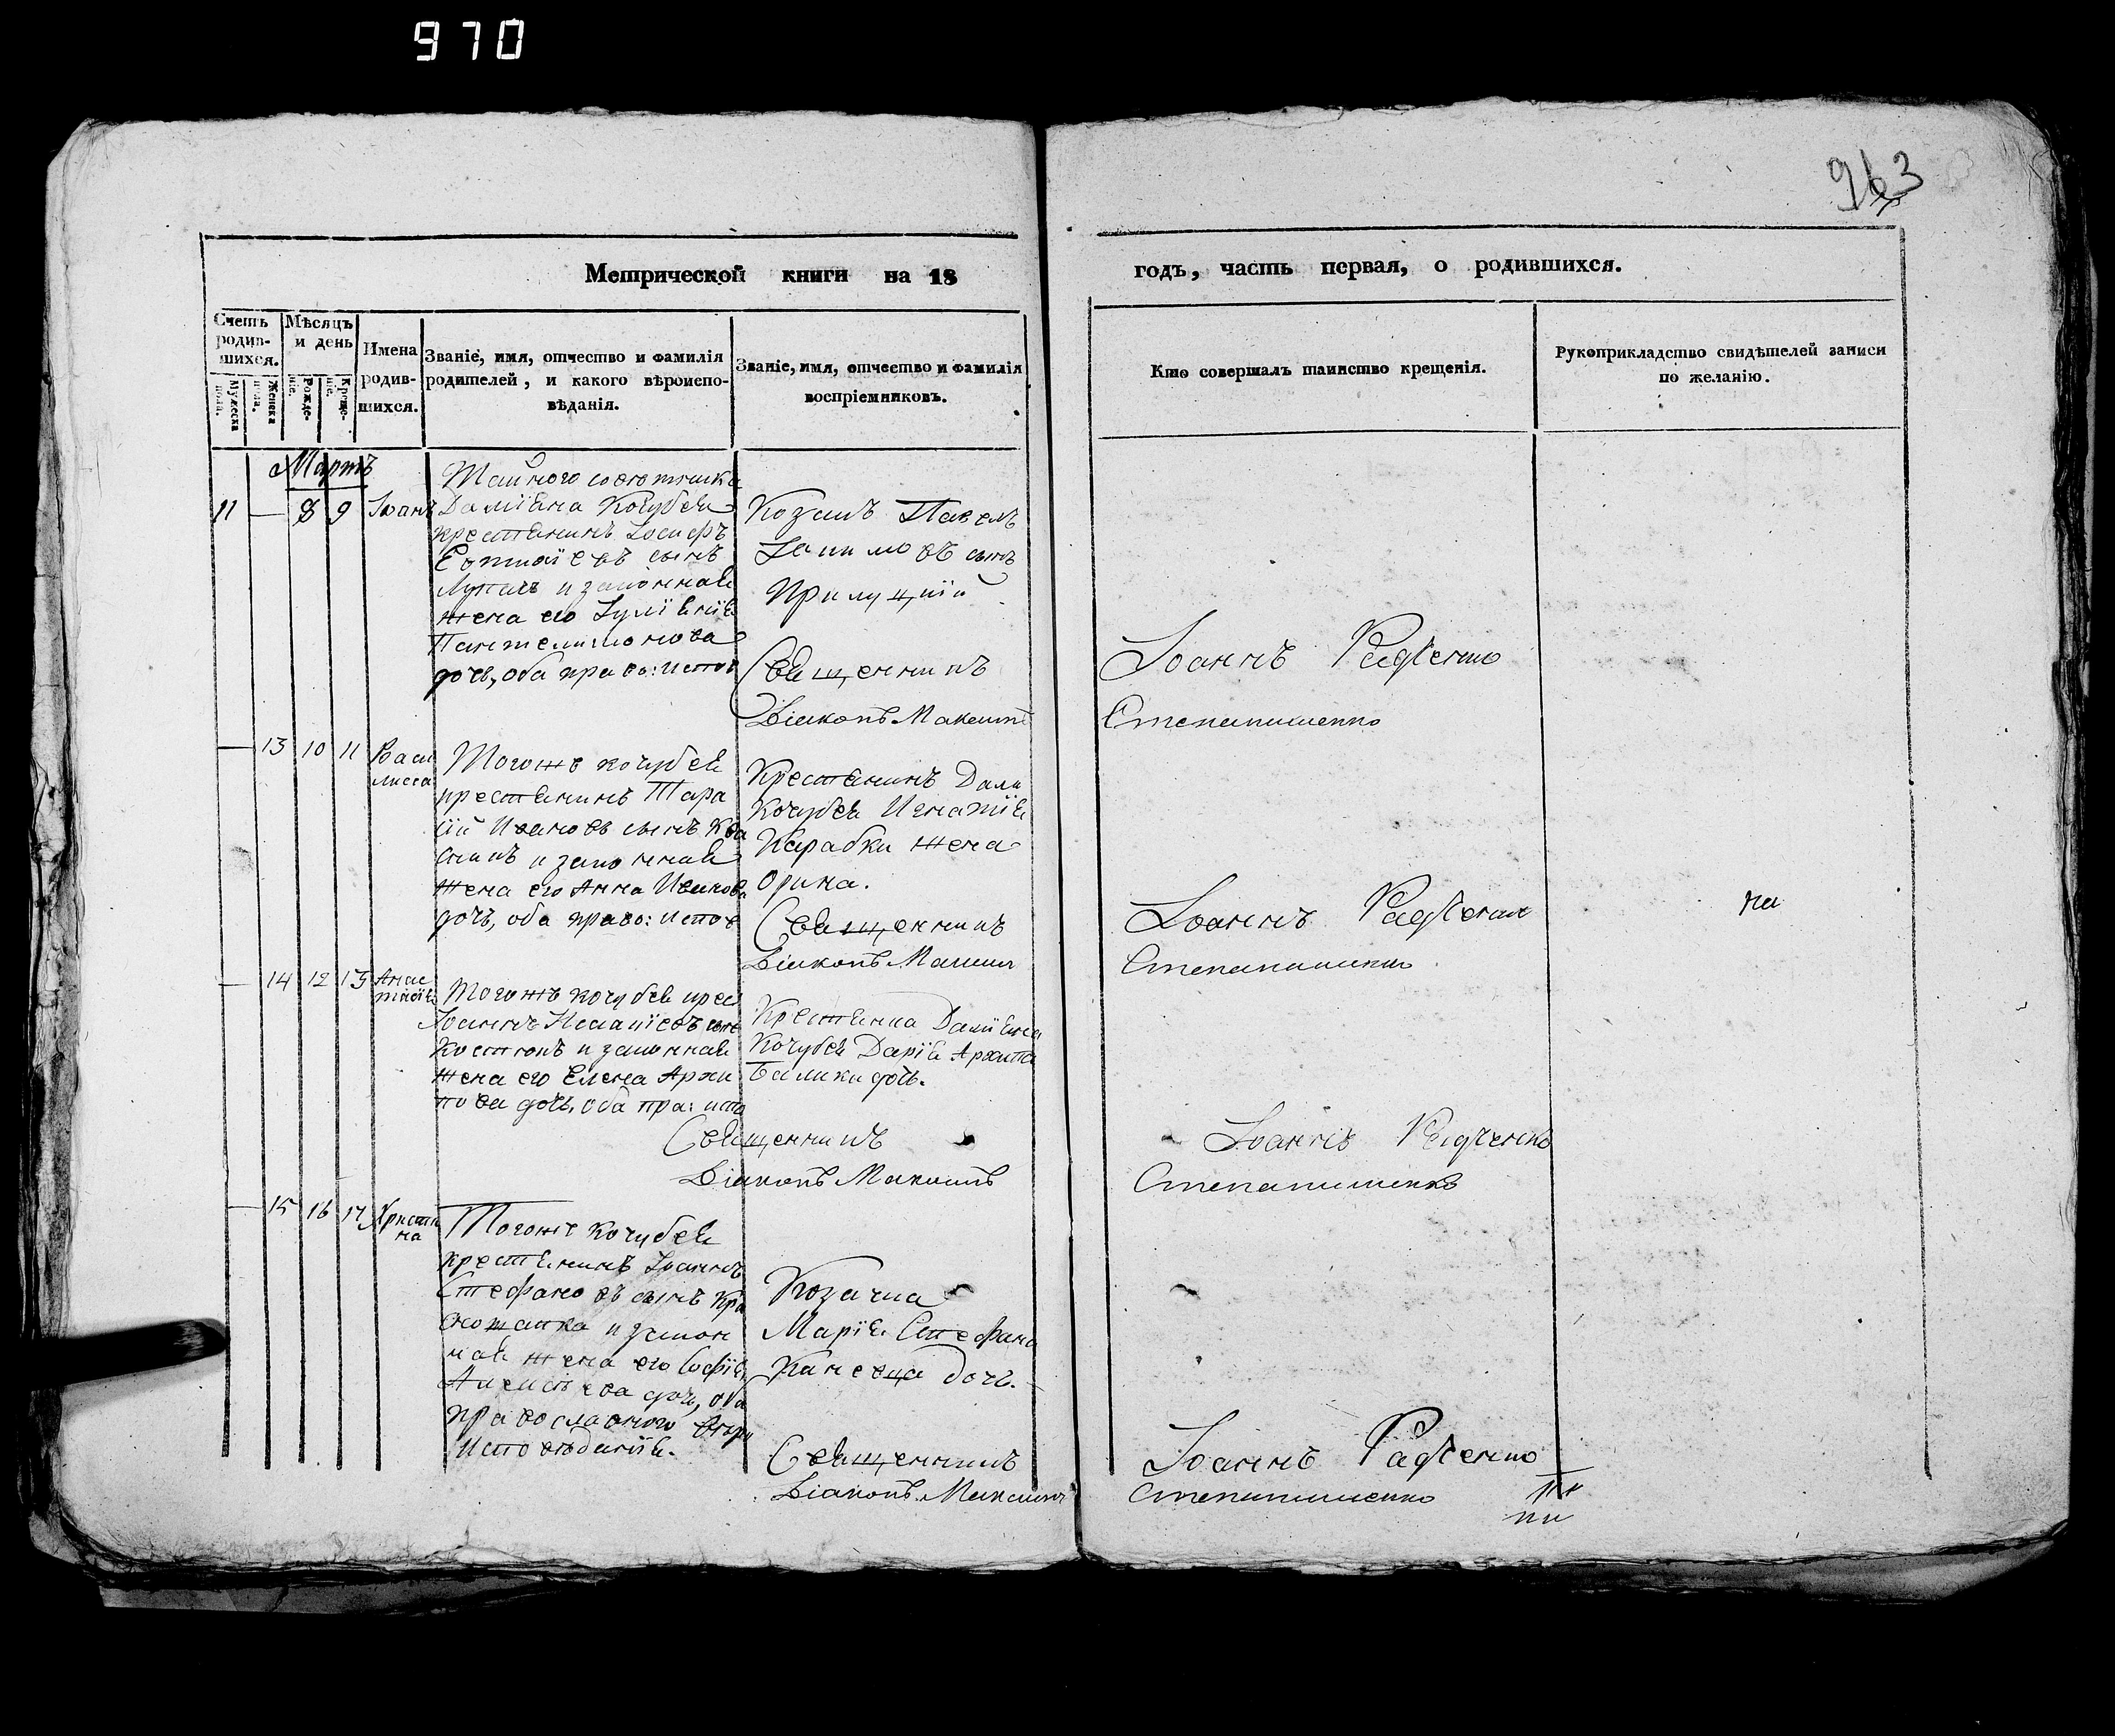 970
963
Метрической книги на 18
годъ, часть первая, о родившихся.
Счетъ родившихся.
Мужеска пола.
Женска пола.
Мѣсяцъ и день
Рожденіе.
Крещеніе.
Имена родившихся.
Званіе, имя, отчество и фамилія родителей, и какого вѣроисповѣданія.
Званіе, имя, отчество и фамилія воспріемниковъ.
Кто совершалъ таинство крещенія.
Рукоприкладство свидѣтелей записи по желанію.
Мартъ
11 — 8 9 Іоаннъ
Тайного совѣтника
Даміяна Кочубея
крестянинъ Іосифъ
сынъ
и законная
жена его Іуліянія
Пантелимонова
дочь, оба право: испов
Козакъ Павелъ
сынъ
Прилуцкій
Священникъ
Іоаннъ Радченко
Діаконъ Максимъ
Степаненко
— 13 10 11 Васи
лисса
Тогожъ кочубея
крестянинъ Тара
сій Ивановъ сынъ Ква
и законная
жена его Анна Иванова
дочь, оба право: испов
Крестянинъ Дамі
Кочубея Игнатія
Карабки жена
Орина.
Священникъ
Іоаннъ Радченко
Діаконъ Максимъ
— 14 12 13 Анас
тасія
Тогожъ кочубея крес
Іоаннъ Исакіевъ сынъ
Костюкъ и законная
жена его Елена Архи
пова дочь, оба пра: испо
Крестянка Даміяна
Кочубея Дарія Архипа
Балики дочь.
Священникъ
Іоаннъ Радченко
Діаконъ Максимъ
— 15 16 17 Христи
на
Тогожъ Кочубея
крестянинъ Іоаннъ
Стефановъ сынъ Кра
сношапка и закон
ная жена его Софія
Алексѣева дочь, оба
православного
исповѣданія.
Козачка
Марія Стефана
дочь.
Священникъ
Іоаннъ Радченко
Діаконъ Максимъ